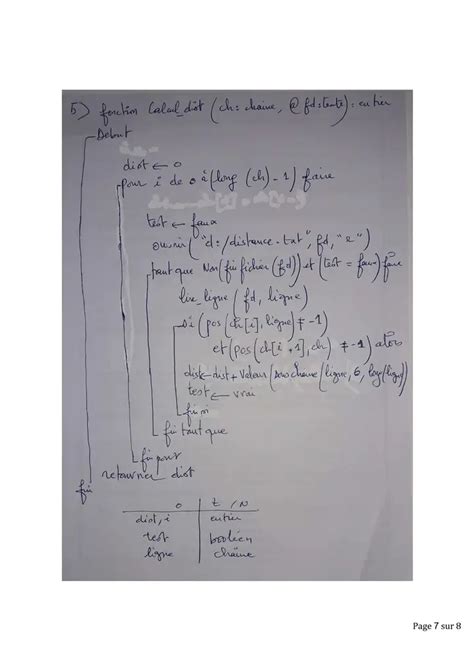 5) fonction Calcul_dist (ch: chaine, @ fd: texte): entier
Debut
dist ← 0
pour i de 0 à (long (ch) - 1) faire
test ← faux
ouvrir ("d:/distance.txt", fd, "e")
tant que Non (fin fichier (fd)) et (test = faux) faire
lire_ligne (fd, ligne)
Si (pos (ch[i], ligne) ≠ -1)
et (pos (ch[i+1], ch) ≠ -1) alors
dist ← dist + valeur (sous chaine (ligne, 6, long (ligne))
test ← vrai
fin si
fin tant que
fin pour
retourner dist
fin
O T/N
dist, i entier
test booléen
ligne chaîne
Page 7 sur 8